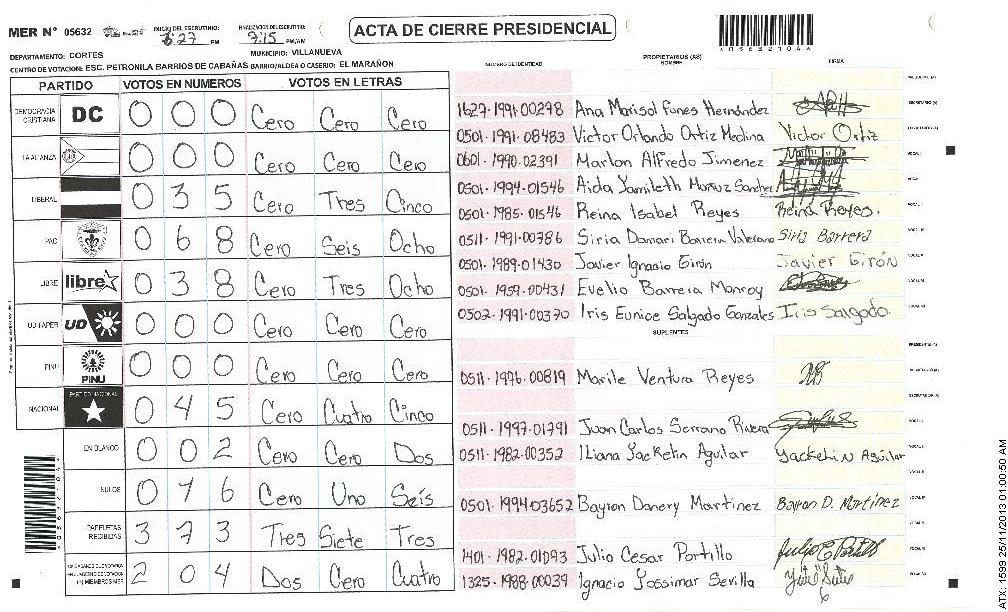 MER N° 05632 INICIO DEL ESCRUTINIO: 5:27 PM FINALIZACION DEL ESCRUTINIO: 7:15 PM/AM ACTA DE CIERRE PRESIDENCIAL
DEPARTAMENTO: CORTES MUNICIPIO: VILLANUEVA
CENTRO DE VOTACION: ESC. PETRONILA BARRIOS DE CABAÑAS BARRIO/ALDEA O CASERIO: EL MARAÑON
PARTIDO VOTOS EN NUMEROS VOTOS EN LETRAS
DEMOCRACIA CRISTIANA DC 0 0 0 Cero Cero Cero
LA ALIANZA 0 0 0 Cero Cero Cero
LIBERAL 0 3 5 Cero Tres Cinco
PAC 0 6 8 Cero Seis Ocho
LIBRE libre 0 3 8 Cero Tres Ocho
UD FAPER UD 0 0 0 Cero Cero Cero
PINU PINU 0 0 0 Cero Cero Cero
NACIONAL PARTIDO NACIONAL 0 4 5 Cero Cuatro Cinco
EN BLANCO 0 0 2 Cero Cero Dos
NULOS 0 1 6 Cero Uno Seis
PAPELETAS RECIBIDAS 3 7 3 Tres Siete Tres
2 0 4 Dos Cero Cuatro
NUMERO DE IDENTIDAD PROPIETARIOS (AS) NOMBRE FIRMA
1627-1991-00278 Ana Marisol Funes Hernández
0501-1991-08483 Victor Orlando Ortiz Medina Victor Ortiz
0601-1990-02391 Marlon Alfredo Jimenez
0501-1994-01546 Aida Yamileth Muñoz Sanchez
0501-1985-01546 Reina Isabel Reyes Reina Reyes.
0511-1991-00786 Siria Damari Barrera Valeriano Siria Barrera
0501-1989-01430 Javier Ignacio Girón Javier Girón
0501-1959-00431 Evelio Barrera Monroy
0502-1991-00370 Iris Eunice Salgado Gonzales Iris Salgado.
SUPLENTES
0511-1976-00819 Marile Ventura Reyes
0511-1997-01791 Juan Carlos Serrano Rivera
0511-1982-00352 Iliana Yackelin Aguilar Yackelin Aguilar
0501-1994-03652 Bayron Danery Martinez Bayron D. Martinez
1401-1982-01093 Julio Cesar Portillo Julio C Portillo
1325-1988-00039 Ignacio Yossimar Sevilla
ATX: 1599 25/11/2013 01:00:50 AM